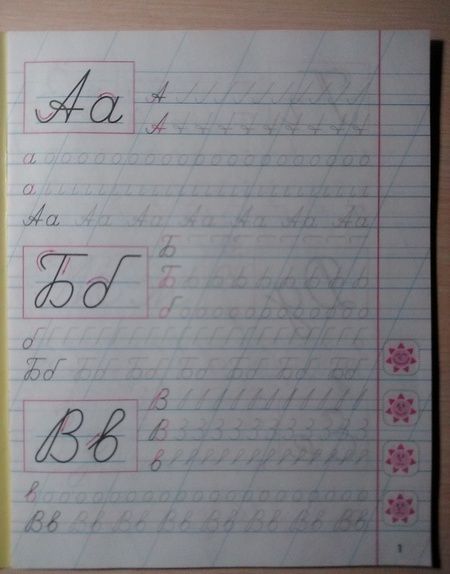 Аа
А
А
а
а
Аа Аа Аа Аа Аа Аа Аа
Бб
Б
Б
б
б
Бб Бб Бб Бб Бб Бб Бб
Вв
В
В
в
в
Вв Вв Вв Вв Вв Вв Вв Вв
1